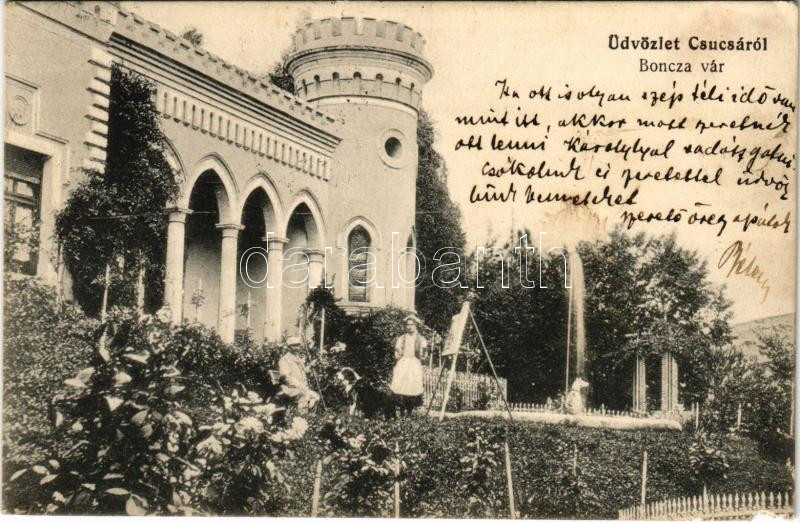 Üdvözlet Csucsáról
Boncza vár
Ha ott is olyan szép téli idő van
mint itt, akkor most szeretnék
ott lenni Károlylyal vadászgatni
Csókolunk és szeretettel üdvöz
lünk benneteket
szerető öreg apátok
darabanth